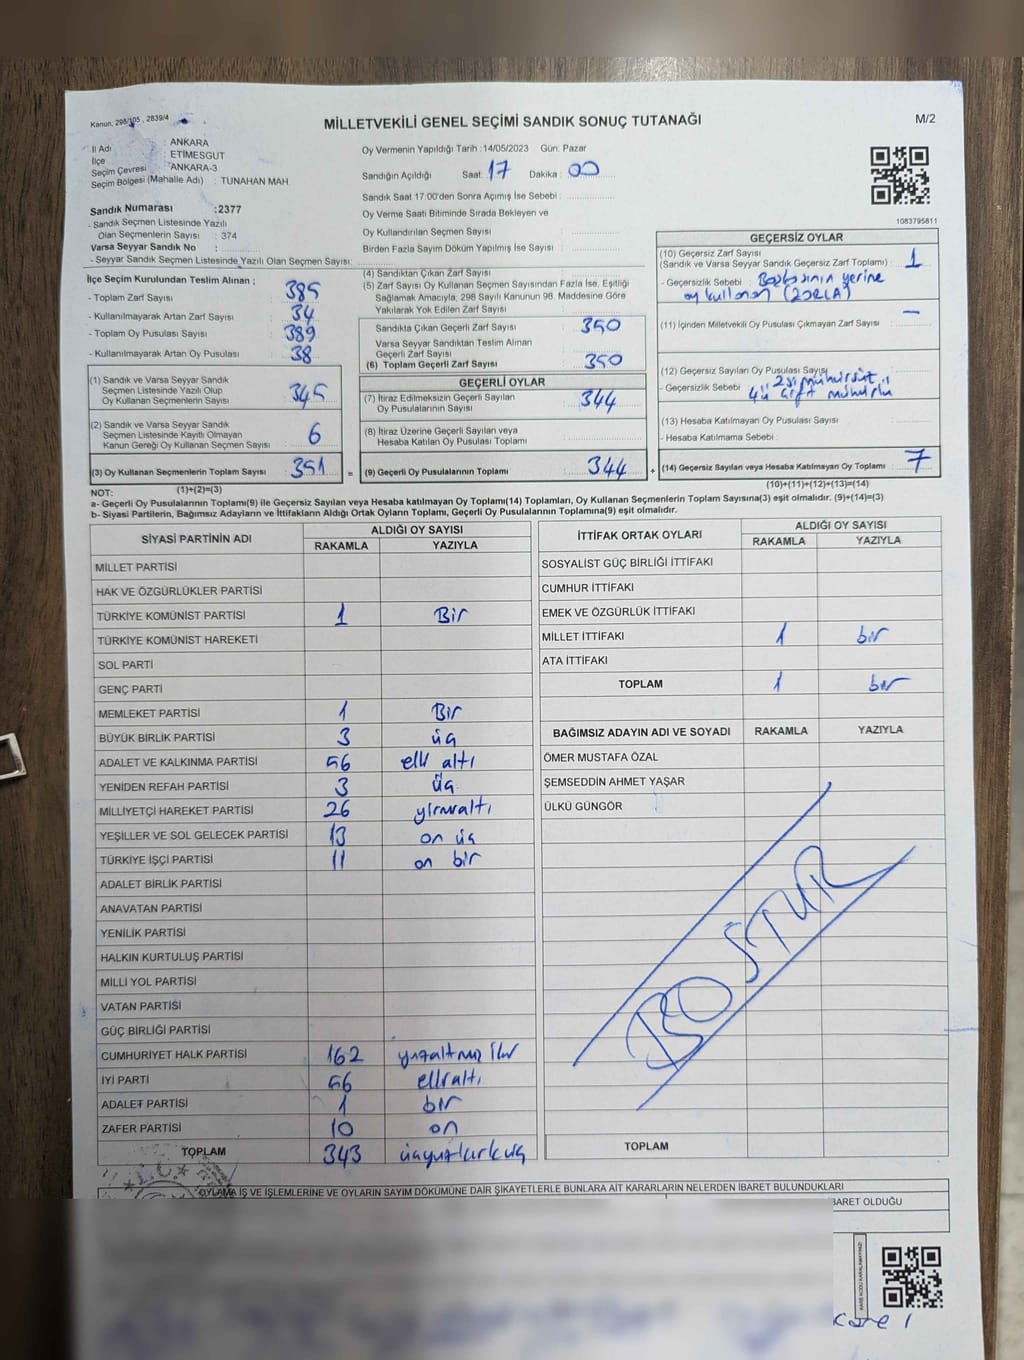 Kanun; 298/105 , 2839/4
MİLLETVEKİLİ GENEL SEÇİMİ SANDIK SONUÇ TUTANAĞI
M/2
İl Adı : ANKARA
İlçe : ETİMESGUT
Seçim Çevresi : ANKARA-3
Seçim Bölgesi (Mahalle Adı) : TUNAHAN MAH
Sandık Numarası : 2377
- Sandık Seçmen Listesinde Yazılı
Olan Seçmenlerin Sayısı : 374
Varsa Seyyar Sandık No :
- Seyyar Sandık Seçmen Listesinde Yazılı Olan Seçmen Sayısı:
Oy Vermenin Yapıldığı Tarih :14/05/2023 Gün: Pazar
Sandığın Açıldığı Saat: 17 Dakika : 00
Sandık Saat 17:00'den Sonra Açımış İse Sebebi :
Oy Verme Saati Bitiminde Sırada Bekleyen ve
Oy Kullandırılan Seçmen Sayısı :
Birden Fazla Sayım Döküm Yapılmış İse Sayısı :
1083795811
İlçe Seçim Kurulundan Teslim Alınan ;
- Toplam Zarf Sayısı : 385
- Kullanılmayarak Artan Zarf Sayısı : 34
- Toplam Oy Pusulası Sayısı : 389
- Kullanılmayarak Artan Oy Pusulası : 38
(1) Sandık ve Varsa Seyyar Sandık
Seçmen Listesinde Yazılı Olup
Oy Kullanan Seçmenlerin Sayısı : 345
(2) Sandık ve Varsa Seyyar Sandık
Seçmen Listesinde Kayıtlı Olmayan
Kanun Gereği Oy Kullanan Seçmen Sayısı : 6
(3) Oy Kullanan Seçmenlerin Toplam Sayısı : 351 =
(4) Sandıktan Çıkan Zarf Sayısı :
(5) Zarf Sayısı Oy Kullanan Seçmen Sayısından Fazla İse, Eşitliği
Sağlamak Amacıyla; 298 Sayılı Kanunun 98. Maddesine Göre
Yakılarak Yok Edilen Zarf Sayısı :
Sandıkta Çıkan Geçerli Zarf Sayısı : 350
Varsa Seyyar Sandıktan Teslim Alınan
Geçerli Zarf Sayısı :
(6) Toplam Geçerli Zarf Sayısı : 350
GEÇERLİ OYLAR
(7) İtiraz Edilmeksizin Geçerli Sayılan
Oy Pusulalarının Sayısı : 344
(8) İtiraz Üzerine Geçerli Sayılan veya
Hesaba Katılan Oy Pusulası Toplamı :
(9) Geçerli Oy Pusulalarının Toplamı : 344 +
GEÇERSİZ OYLAR
(10) Geçersiz Zarf Sayısı
(Sandık ve Varsa Seyyar Sandık Geçersiz Zarf Toplamı) : 1
- Geçersizlik Sebebi : Başkasının yerine
oy kullanan (ZORLA)
(11) İçinden Milletvekili Oy Pusulası Çıkmayan Zarf Sayısı : —
(12) Geçersiz Sayılan Oy Pusulası Sayısı
- Geçersizlik Sebebi : 2si mühürsüz
4ü çift mühürlü
(13) Hesaba Katılmayan Oy Pusulası Sayısı :
- Hesaba Katılmama Sebebi :
(14) Geçersiz Sayılan veya Hesaba Katılmayan Oy Toplamı : 7
NOT: (1)+(2)=(3)
(10)+(11)+(12)+(13)=(14)
a- Geçerli Oy Pusulalarının Toplamı(9) ile Geçersiz Sayılan veya Hesaba katılmayan Oy Toplamı(14) Toplamları, Oy Kullanan Seçmenlerin Toplam Sayısına(3) eşit olmalıdır. (9)+(14)=(3)
b- Siyasi Partilerin, Bağımsız Adayların ve İttifakların Aldığı Ortak Oyların Toplamı, Geçerli Oy Pusulalarının Toplamına(9) eşit olmalıdır.
SİYASİ PARTİNİN ADI ALDIĞI OY SAYISI
RAKAMLA YAZIYLA
MİLLET PARTİSİ
HAK VE ÖZGÜRLÜKLER PARTİSİ
TÜRKİYE KOMÜNİST PARTİSİ 1 Bir
TÜRKİYE KOMÜNİST HAREKETİ
SOL PARTİ
GENÇ PARTİ
MEMLEKET PARTİSİ 1 Bir
BÜYÜK BİRLİK PARTİSİ 3 üç
ADALET VE KALKINMA PARTİSİ 56 elli altı
YENİDEN REFAH PARTİSİ 3 üç
MİLLİYETÇİ HAREKET PARTİSİ 26 yirmialtı
YEŞİLLER VE SOL GELECEK PARTİSİ 13 on üç
TÜRKİYE İŞÇİ PARTİSİ 11 on bir
ADALET BİRLİK PARTİSİ
ANAVATAN PARTİSİ
YENİLİK PARTİSİ
HALKIN KURTULUŞ PARTİSİ
MİLLİ YOL PARTİSİ
VATAN PARTİSİ
GÜÇ BİRLİĞİ PARTİSİ
CUMHURİYET HALK PARTİSİ 162 yüzaltmış iki
İYİ PARTİ 56 ellialtı
ADALET PARTİSİ 1 bir
ZAFER PARTİSİ 10 on
TOPLAM 343 üçyüzkırküç
İTTİFAK ORTAK OYLARI ALDIĞI OY SAYISI
RAKAMLA YAZIYLA
SOSYALİST GÜÇ BİRLİĞİ İTTİFAKI
CUMHUR İTTİFAKI
EMEK VE ÖZGÜRLÜK İTTİFAKI
MİLLET İTTİFAKI 1 bir
ATA İTTİFAKI
TOPLAM 1 bir
BAĞIMSIZ ADAYIN ADI VE SOYADI RAKAMLA YAZIYLA
ÖMER MUSTAFA ÖZAL
ŞEMSEDDİN AHMET YAŞAR
ÜLKÜ GÜNGÖR
BOŞTUR
TOPLAM
T.C.
OYLAMA İŞ VE İŞLEMLERİNE VE OYLARIN SAYIM DÖKÜMÜNE DAİR ŞİKAYETLERLE BUNLARA AİT KARARLARIN NELERDEN İBARET BULUNDUKLARI
BARET OLDUĞU